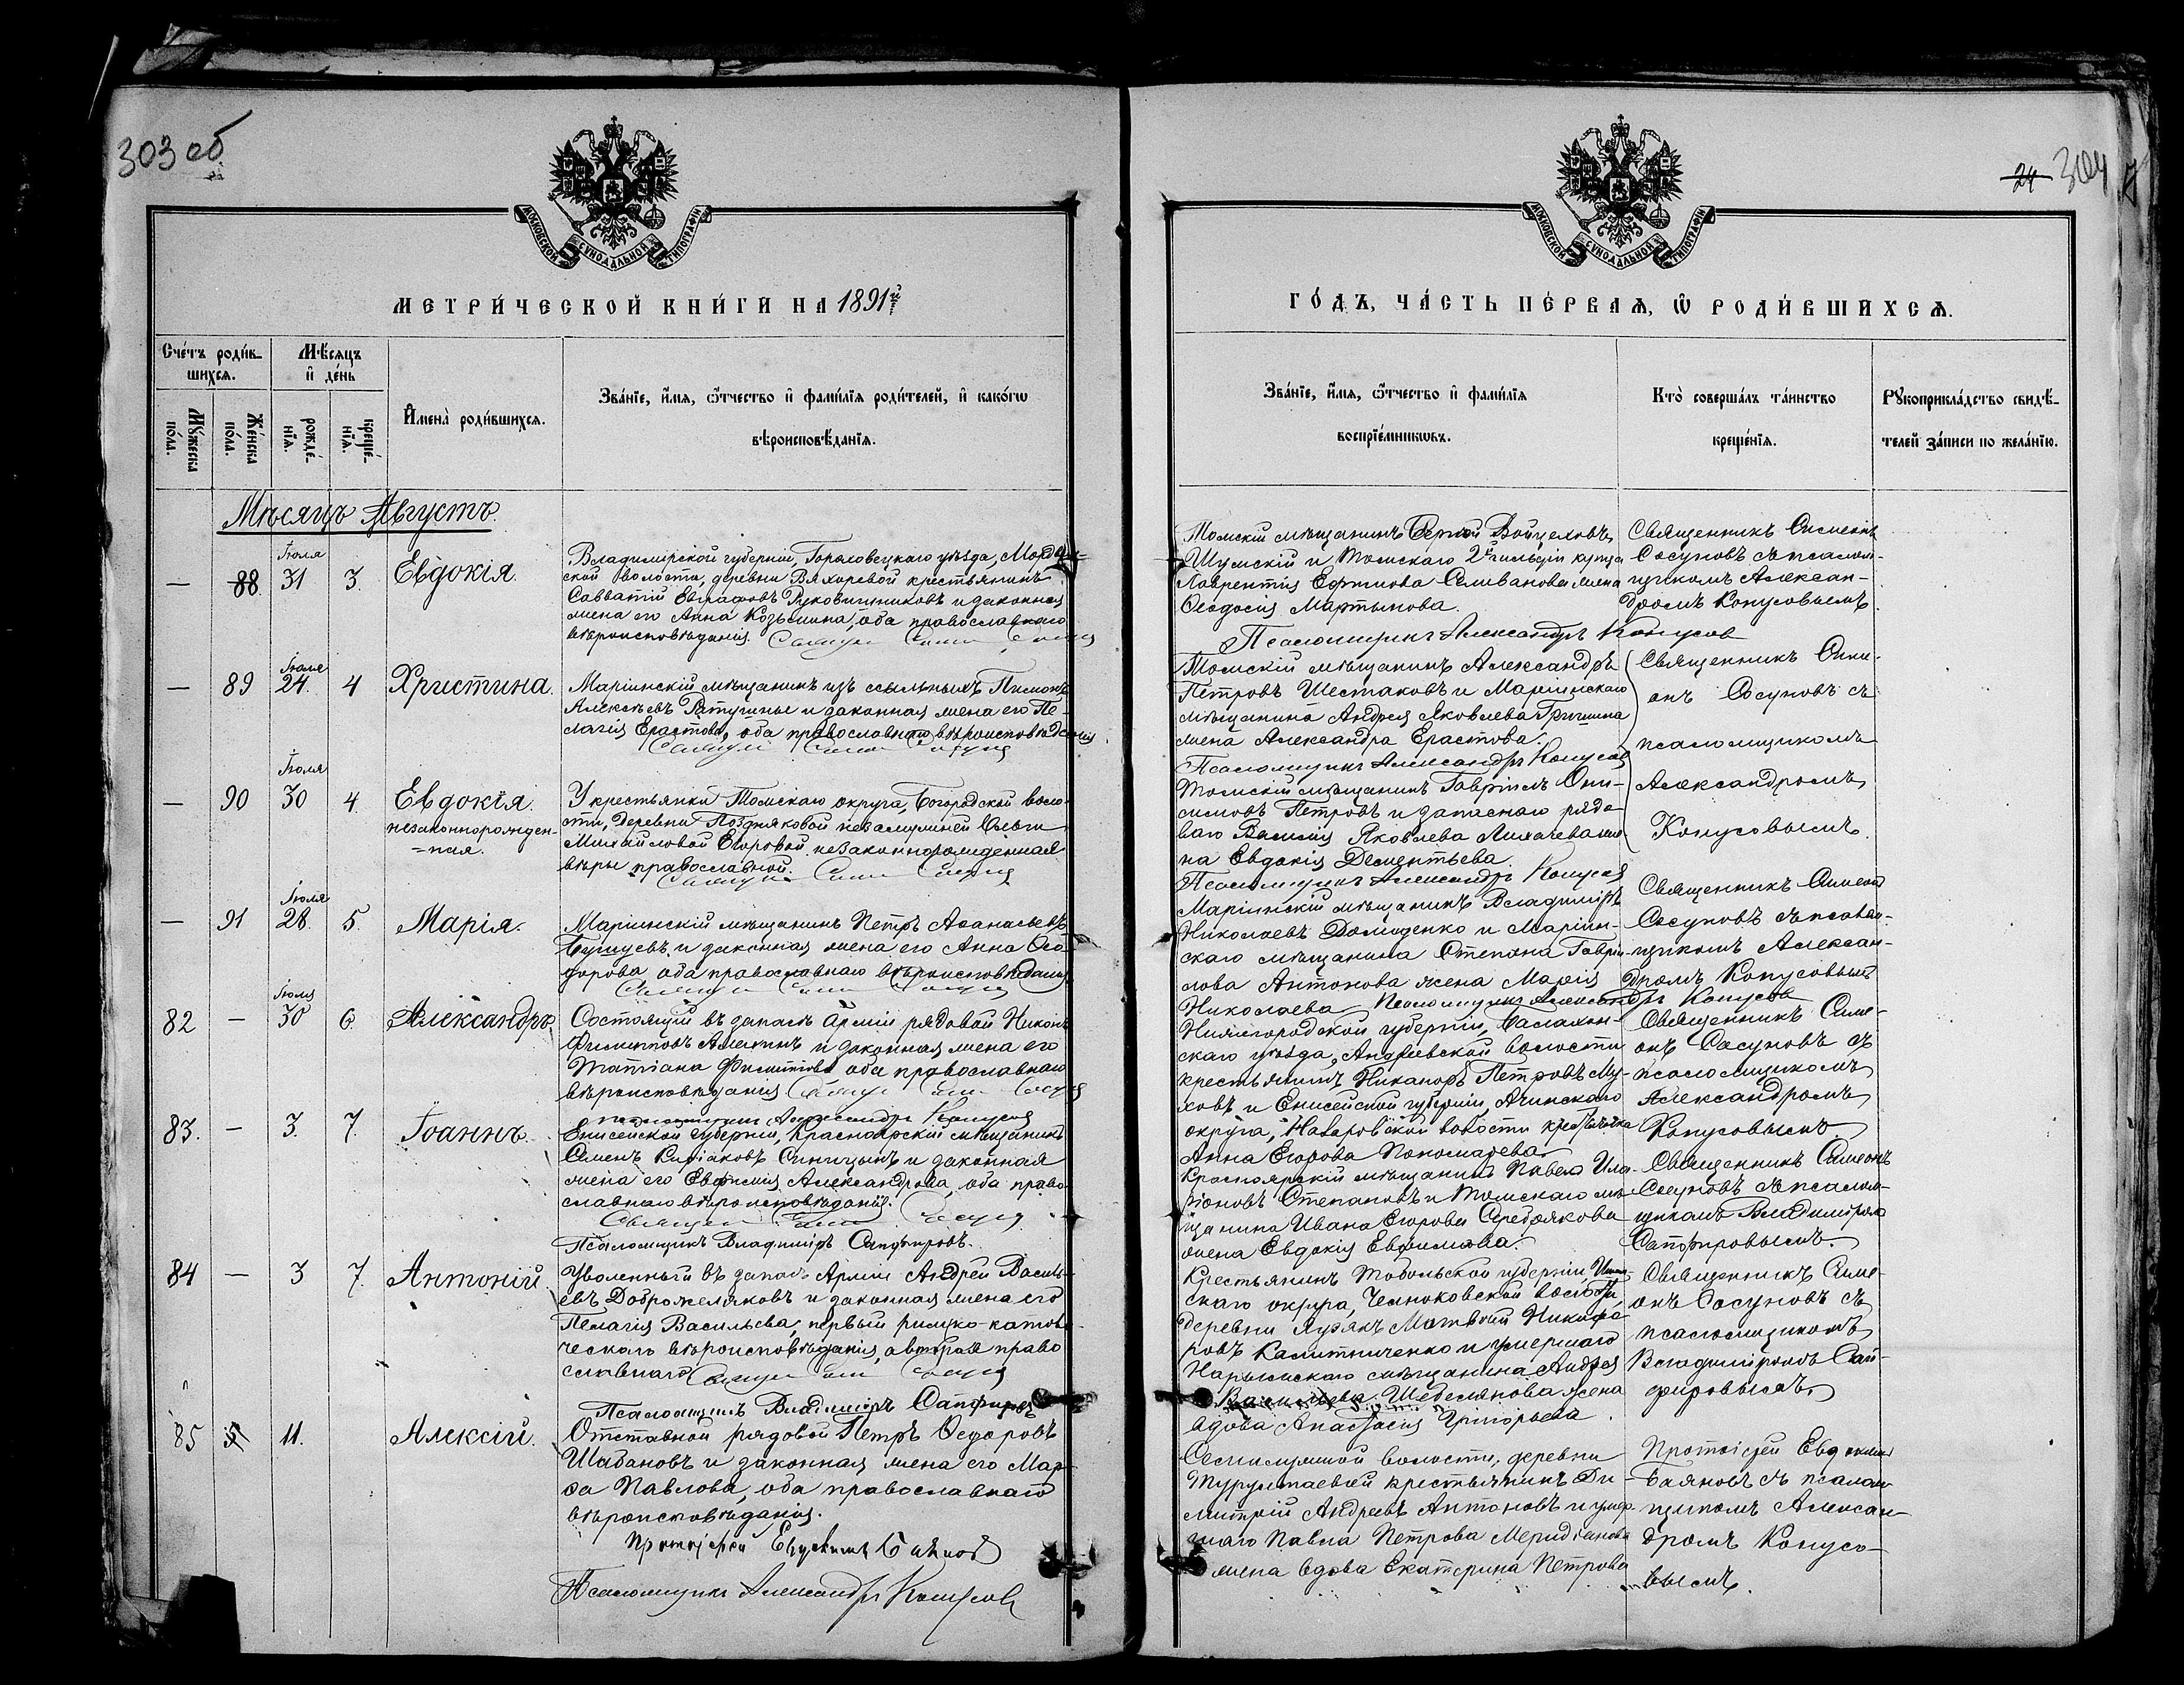 303 об
24 304
МОСКОВСКОЙ СѴНОДАЛЬНОЙ ТИПОГРАФІИ
МОСКОВСКОЙ СѴНОДАЛЬНОЙ ТИПОГРАФІИ
МЕТРИ́ЧЕСКОЙ КНИ́ГИ НА 1891й
ГО́ДЪ, ЧА́СТЬ ПЕ́РВАѦ, Ѿ РОДИ́ВШИХСѦ.
Сче́тъ роди́в-
шихсѧ.
Мꙋ́жеска по́ла.
Же́нска по́ла.
Мѣ́сѧцъ
и҆ де́нь
рожде́-
нїѧ.
креще́-
нїѧ.
И҆мена̀ роди́вшихсѧ.
Зва́нїе, и҆́мѧ, ѻ҆́тчество и҆ фами́лїѧ роди́телей, и҆ како́гѡ
вѣроисповѣ́данїѧ.
Зва́нїе, и҆́мѧ, ѻ҆́тчество и҆ фами́лїѧ
воспрїе́мникѡвъ.
Кто̀ соверша́лъ та́инство
креще́нїѧ.
Рꙋкоприкла́дство свидѣ́-
телей за́писи по жела́нїю.
Мѣсяцъ Августъ.
— 88. Іюля 31 3. Евдокія.
Владимірской губерніи, Гороховецкаго уѣзда,
ской волости, деревни Вяхоревой крестьянинъ
Савватій Евграфовъ Рукавишниковъ и законная
жена его Анна Козьмина, оба православнаго
вѣроисповѣданія.
Томскій мѣщанинъ
Шумскій и Томскаго 2й гильдіи купца
Лаврентія Ефимова Селиванова жена
Ѳеодосія Мартынова.
Псаломщикъ Александръ Конусов
Священникъ Симеонъ
Сосуновъ съ псалом-
щикомъ Алексан-
дромъ Конусовымъ.
— 89 Іюля 24. 4 Христина.
Маріинскій мѣщанинъ изъ ссыльныхъ Пимонъ
Алексѣевъ и законная жена его Пе-
лагія Ерастова, оба православнаго вѣроисповѣданія
Томскій мѣщанинъ Александръ
Петровъ Шестаковъ и Маріинскаго
мѣщанина Андрея Яковлева Гришина
жена Александра Ерастова.
Псаломщикъ Александръ Конусов
Священникъ Симе-
онъ Сосуновъ съ
псаломщикомъ
Александромъ
Конусовымъ.
— 90 Іюля 30 4. Евдокія.
незаконнорожден-
=ная.
У крестьянки Томскаго округа, Богородской воло-
сти, деревни Поздняковой незамужней Ольги
Михайловой Егоровой незаконнорожденная
вѣры православной.
Томскій мѣщанинъ Гавріилъ Они-
симовъ Петровъ и запаснаго рядо-
ваго Василія Яковлева Лихачева же-
на Евдокія Дементьева.
Псаломщикъ Александръ Конусов
— 91 Іюля 28. 5. Марія.
Маріинскій мѣщанинъ Петръ Аѳанасьевъ
и законная жена его Анна Ѳео-
дорова, оба православнаго вѣроисповѣданія
Маріинскій мѣщанинъ Владиміръ
Николаевъ Домащенко и Маріин-
скаго мѣщанина Степана Гаврі-
лова Антонова жена Марія
Николаева Псаломщикъ Александръ Конусов
Священникъ Симеонъ
Сосуновъ съ псалом-
щикомъ Алексан-
дромъ Конусовымъ
82 — Іюля 30 6. Александръ.
Состоящій въ запасѣ Арміи рядовой Никонъ
Филипповъ Алехинъ и законная жена его
Татіана Филиппова оба православнаго
вѣроисповѣданія.
Псаломщикъ Александръ Конусов
Нижегородской губерніи, Балахон-
скаго уѣзда, Андреевской волости
крестьянинъ Никаноръ Петровъ Му-
ховъ и Енисейской губерніи, Ачинскаго
округа, Назаровской волости крестьянка
Анна Егорова Пономарева.
Священникъ Симе-
онъ Сосуновъ съ
псаломщикомъ
Александромъ
Конусовымъ
83. — 3. 7. Іоаннъ.
Енисейской губерніи, Красноярскій мѣщанинъ
Семенъ Киріаковъ Синицынъ и законная
жена его Евфимія Александрова, оба право-
славнаго вѣроисповѣданія.
Псаломщикъ Владиміръ Сапфировъ.
Красноярскій мѣщанинъ Павелъ Ила-
ріоновъ Степановъ и Томскаго мѣ-
щанина Ивана Егорова Серебрякова
жена Евдокія Евфимова.
Священникъ Симеонъ
Сосуновъ съ псалом-
щикомъ Владиміромъ
Сапфировымъ.
84 — 3 7. Антоній.
Уволенный въ запасъ Арміи Андрей Василь-
евъ Доброжеляковъ и законная жена его
Пелагія Васильева, первый римско-католи-
ческаго вѣроисповѣданія, а вторая право-
славнаго
Псаломщикъ Владиміръ Сапфировъ
Крестьянинъ Тобольской губерніи,
скаго округа, волости,
деревни Матвѣй Никифо-
ровъ Калитниченко и умершаго
Нарымскаго мѣщанина Андрея
Васильева жена
вдова Анастасія Григорьева.
Священникъ Симе-
онъ Сосуновъ съ
псаломщикомъ
Владиміромъ Сап-
фировымъ.
85 11. Алексій.
Отставной рядовой Петръ Ѳедоровъ
Шабановъ и законная жена его Мар-
ѳа Павлова, оба православнаго
вѣроисповѣданія.
Протоіерей
Псаломщикъ Александръ Конусовъ
волости, деревни
Турунтаевой крестьянинъ Ди-
митрій Андреевъ Антоновъ и умер-
шаго Павла Петрова Меридіанова
жена вдова Екатерина Петрова
Протоіерей
съ псалом-
щикомъ Алексан-
дромъ Конусо-
вымъ.